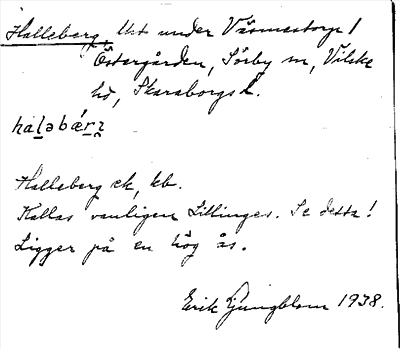 Halleberg, Ust under Väsmestorp 1
Östergården, Sörby sn, Vilske
hd, Skaraborgs l.
haləbǽrʒ
Halleberg ek, kb.
Kallas vanligen Lillinges. Se detta!
Ligger på en hög ås.
Erik Ljungblom 1938.